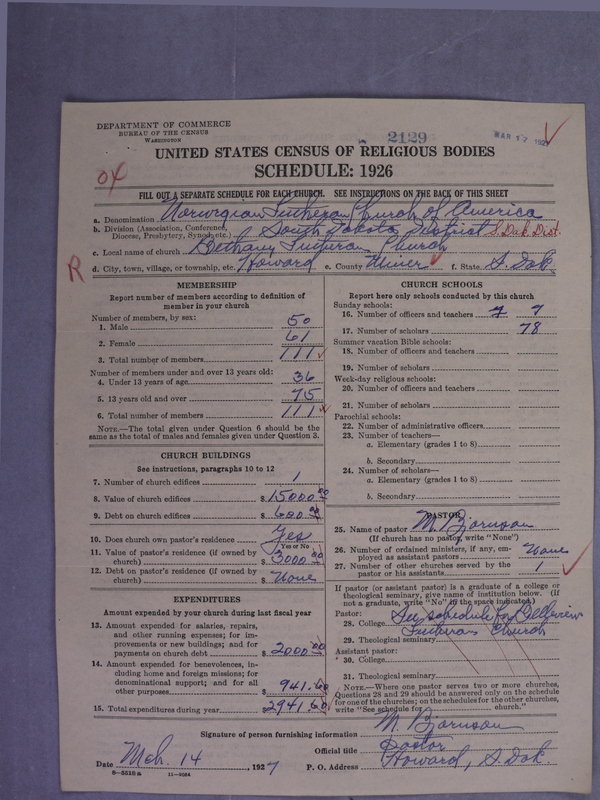 DEPARTMENT OF COMMERCE
BUREAU OF THE CENSUS
WASHINGTON
2129
MAR 17 1927
UNITED STATES CENSUS OF RELIGIOUS BODIES
SCHEDULE: 1926
FILL OUT A SEPARATE SCHEDULE FOR EACH CHURCH. SEE INSTRUCTIONS ON THE BACK OF THIS SHEET
a. Denomination Norwegian Lutheran Church of America
b. Division (Association, Conference, Diocese, Presbytery, Synod, etc.) South Dakota District S. Dak. Dist.
c. Local name of church Bethany Lutheran Church
R
d. City, town, village, or township, etc. Howard e. County Miner f. State S. Dak.
MEMBERSHIP
Report number of members according to definition of
member in your church
Number of members, by sex:
1. Male 50
2. Female 61
3. Total number of members 111
Number of members under and over 13 years old:
4. Under 13 years of age 36
5. 13 years old and over 75
6. Total number of members 111
NOTE.—The total given under Question 6 should be
same as the total of males and females given under Question 3.
CHURCH BUILDINGS
See instructions, paragraphs 10 to 12
7. Number of church edifices 1
8. Value of church edifices $15000.00
9. Debt on church edifices $600.00
10. Does church own pastor's residence? Yes
Yes or No
11. Value of pastor's residence (if owned by
church) $3000.00
12. Debt on pastor's residence (if owned by
church) $None
EXPENDITURES
Amount expended by your church during last fiscal year
13. Amount expended for salaries, repairs,
and other running expenses; for im-
provements or new buildings; and for
payments on church debt $2000.00
14. Amount expended for benevolences, in-
cluding home and foreign missions; for
denominational support; and for all
other purposes $941.60
15. Total expenditures during year $2941.60
CHURCH SCHOOLS
Report here only schools conducted by this church
Sunday schools:
16. Number of officers and teachers 7 7
17. Number of scholars 78
Summer vacation Bible schools:
18. Number of officers and teachers
19. Number of scholars
Week-day religious schools:
20. Number of officers and teachers
21. Number of scholars
Parochial schools:
22. Number of administrative officers
23. Number of teachers—
a. Elementary (grades 1 to 8)
b. Secondary
24. Number of scholars—
a. Elementary (grades 1 to 8)
b. Secondary
PASTOR
25. Name of pastor M. Bjornson
(If church has no pastor, write "None")
26. Number of ordained ministers, if any, em-
ployed as assistant pastors None
27. Number of other churches served by the
pastor or his assistants 1
If pastor (or assistant pastor) is a graduate of a college or
theological seminary, give name of institution below. (If
not a graduate, write "No" in the space indicated.)
Pastor:
28. College See schedule for Belleview
29. Theological seminary Lutheran Church
Assistant pastor:
30. College
31. Theological seminary
NOTE.—Where one pastor serves two or more churches,
Questions 28 and 29 should be answered only on the schedule
for one of the churches; on the schedules for the other churches,
write "See schedule for ........ church."
Signature of person furnishing information M. Bjornson
Official title Pastor
Date Mch. 14, 1927 P. O. Address Howard, S. Dak.
8—5516a 11—9084